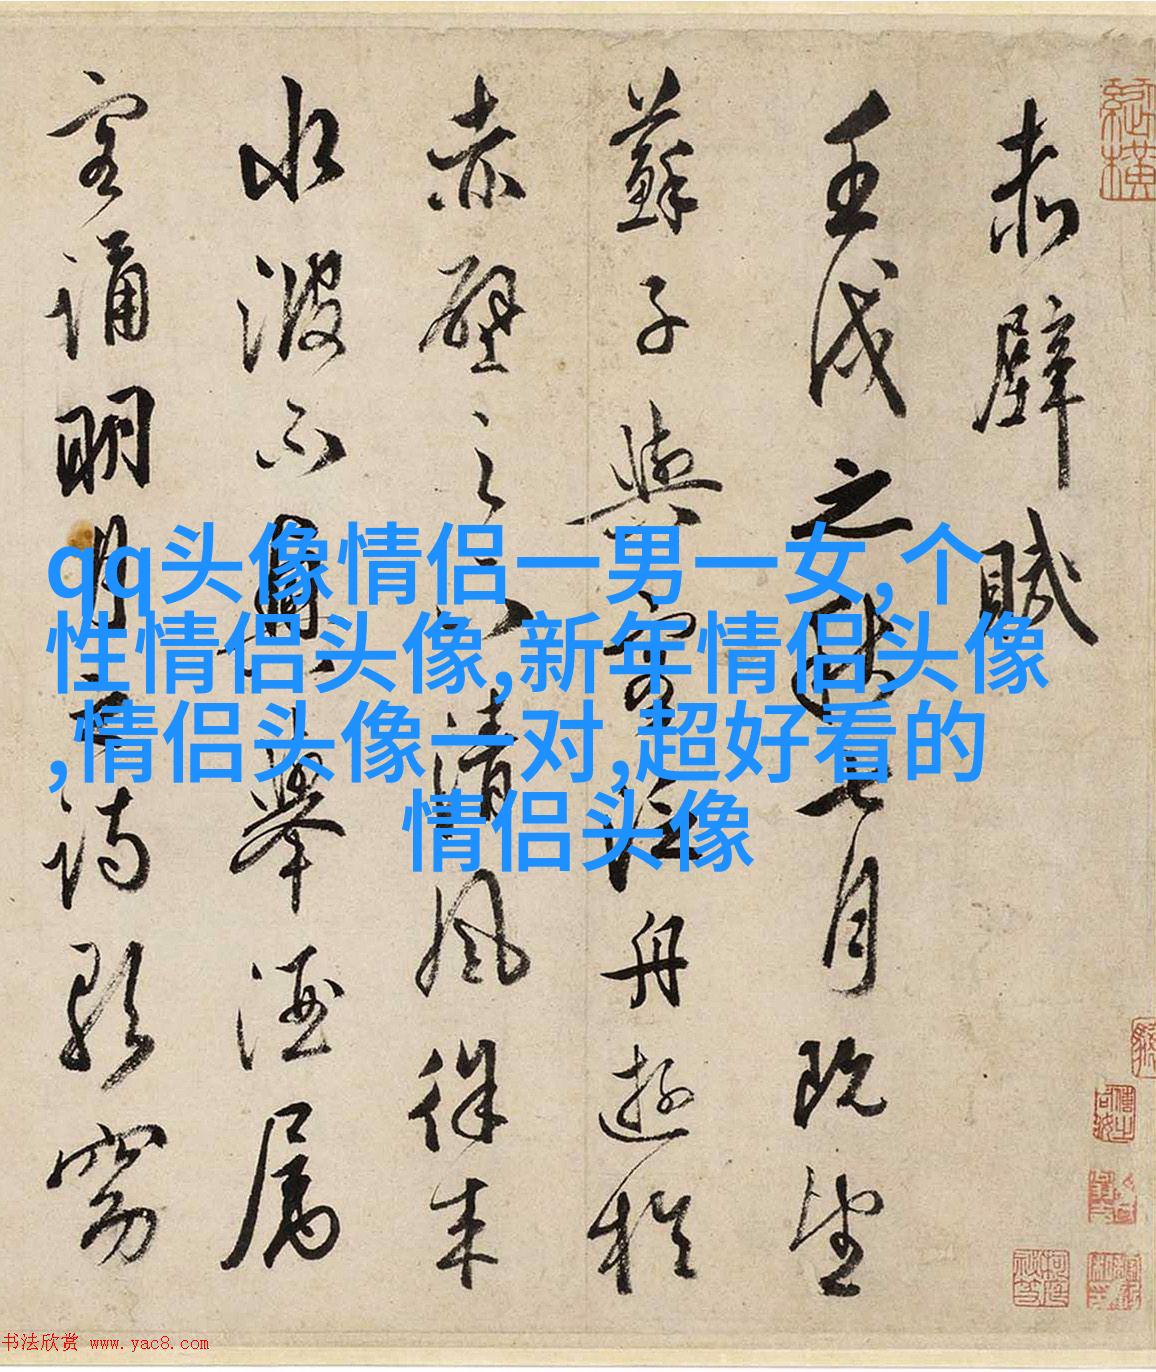 赤壁賦
壬戌之秋七月既望
蘇子與客泛舟遊於
赤壁之下清風徐来
水波不興舉酒属
客誦明月之詩歌窈
qq头像情侣一男一女,个
性情侣头像,新年情侣头像
,情侣头像一对,超好看的
情侣头像
书法欣赏 www.yac8.com